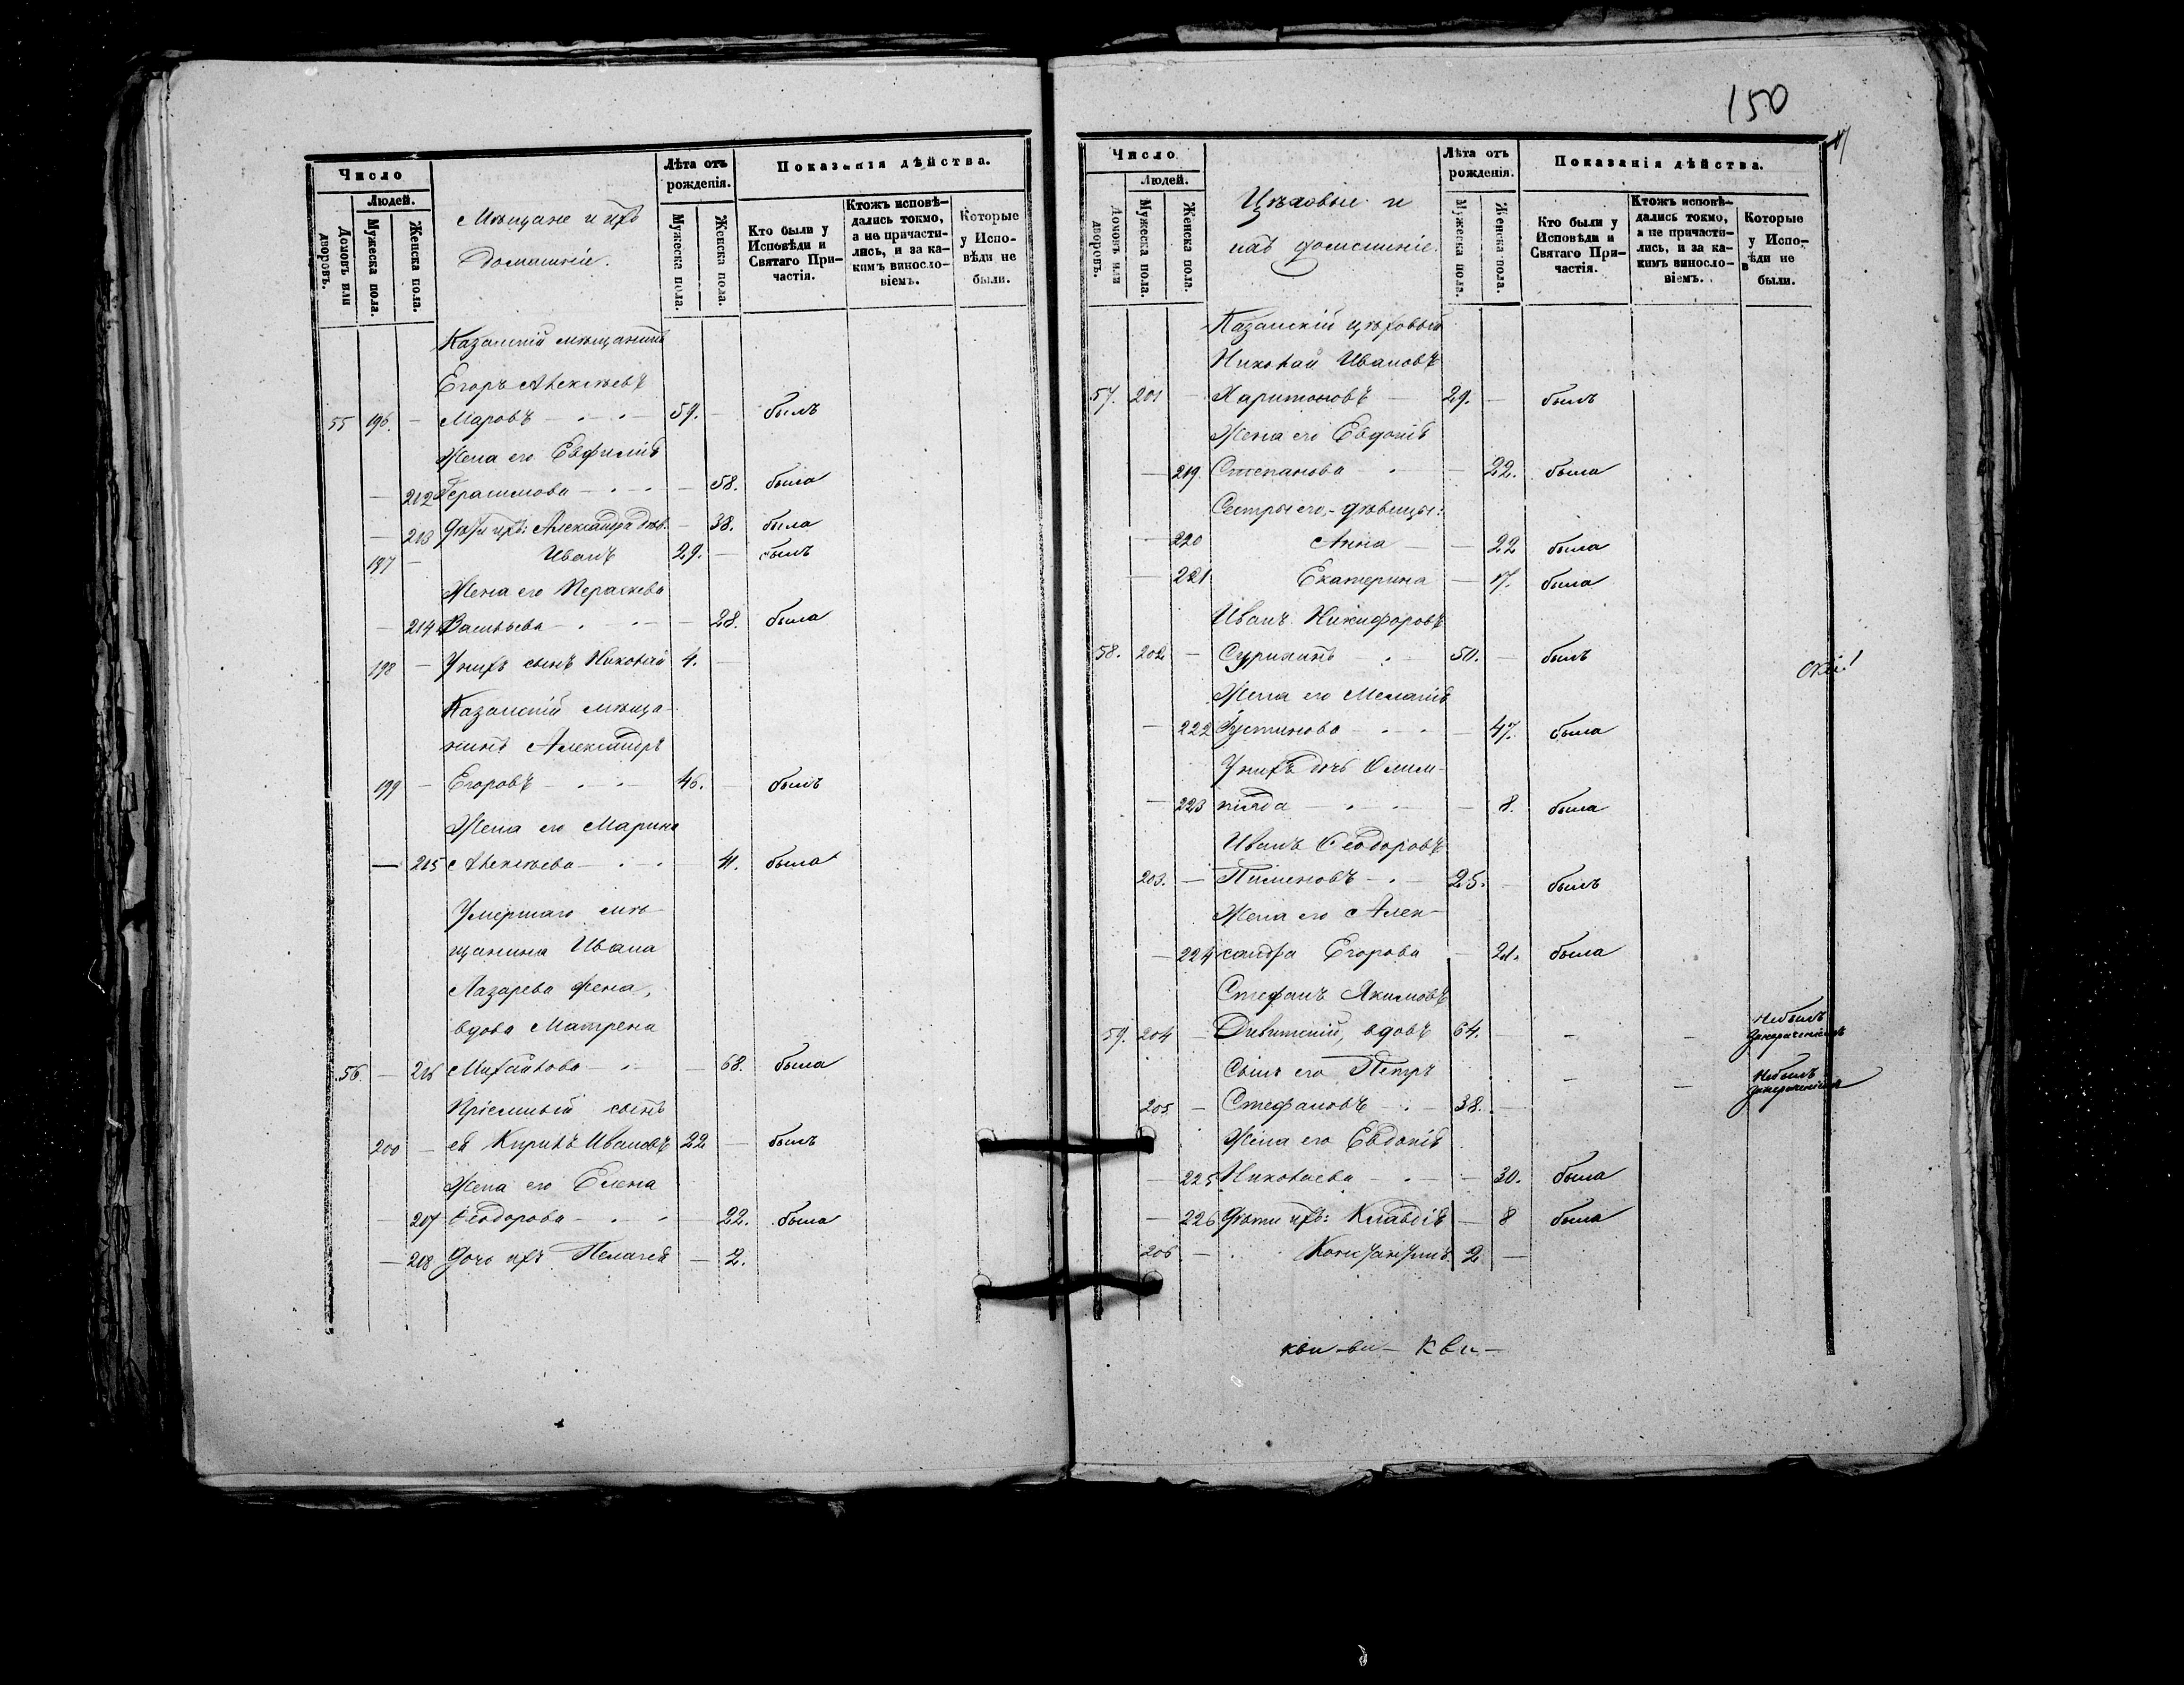 150
Число
Людей.
Домовъ или дворовъ.
Мужеска пола.
Женска пола.
Мѣщане и ихъ
домашніе.
Лѣта отъ рожденія.
Мужеска пола.
Женска пола.
Показанія дѣйства.
Кто были у Исповѣди и Святаго Причастія.
Ктожъ исповѣдались токмо, а не причастились, и за какимъ винословіемъ.
Которые у Исповѣди не были.
Казанскій мѣщанинъ
Егоръ Алексѣевъ
55 196. — Маровъ — 59. — былъ
Жена его Евфимія
— 212 Герасимова — — 58. была
— 213 Дѣти ихъ: Александра дѣв. — 38. была
197 — Иванъ 29. — былъ
Жена его Параскева
— 214 Васильева — — 28. была
198 — У нихъ сынъ Николай 4. —
Казанскій мѣща-
нинъ Александръ
199 — Егоровъ — 46. — былъ
Жена его Марина
— 215 Алексѣева — — 41. была
Умершаго мѣ-
щанина Ивана
Лазарева жена,
вдова Матрена
56. — 216 Михайлова — — 68. была
Пріемный сынъ
200 — ея Кирилъ Ивановъ 22 — былъ
Жена его Елена
— 217 Ѳеодорова — — 22. была
— 218 Дочь ихъ Пелагея — 2.
Число
Людей.
Домовъ или дворовъ.
Мужеска пола.
Женска пола.
Цѣховые и
ихъ домашніе.
Лѣта отъ рожденія.
Мужеска пола.
Женска пола.
Показанія дѣйства.
Кто были у Исповѣди и Святаго Причастія.
Ктожъ исповѣдались токмо, а не причастились, и за какимъ винословіемъ.
Которые у Исповѣди не были.
Казанскій цѣховый
Николай Ивановъ
57. 201 — Харитоновъ — 29. — былъ
Жена его Евдокія
— 219 Степанова — — 22. была
Сестры его, дѣвицы:
— 220 Анна — — 22 была
— 221 Екатерина — 17. была
Иванъ Никифоровъ
58. 202 — 50. — былъ
Жена его Меланія
— 222 Устинова — — 47. была
У нихъ дочь Олим-
— 223 піада — — 8. была
Иванъ Ѳеодоровъ
203. — Пименовъ — 25. — былъ
Жена его Алек-
— 224 сандра Егорова — 21. была
Стефанъ Якимовъ
59. 204 — вдовъ 64. — — — Небылъ
Сынъ его Петръ
205 — Стефановъ — 38. — — — Небылъ
Жена его Евдокія
— 225 Николаева — — 30. была
— 226 Дѣти ихъ: Клавдія — 8 была
206 — Константинъ 2 —